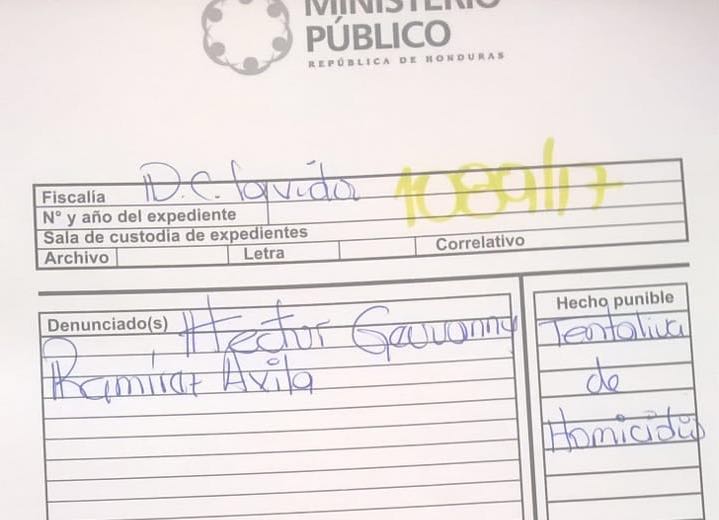 MINISTERIO
PÚBLICO
REPÚBLICA DE HONDURAS
Fiscalía D.C. la vida 1089/17
Nº y año del expediente
Sala de custodia de expedientes
Archivo Letra Correlativo
Denunciado(s) Hector Geovanny
Ramirez Avila
Hecho punible
Tentativa
de
Homicidio